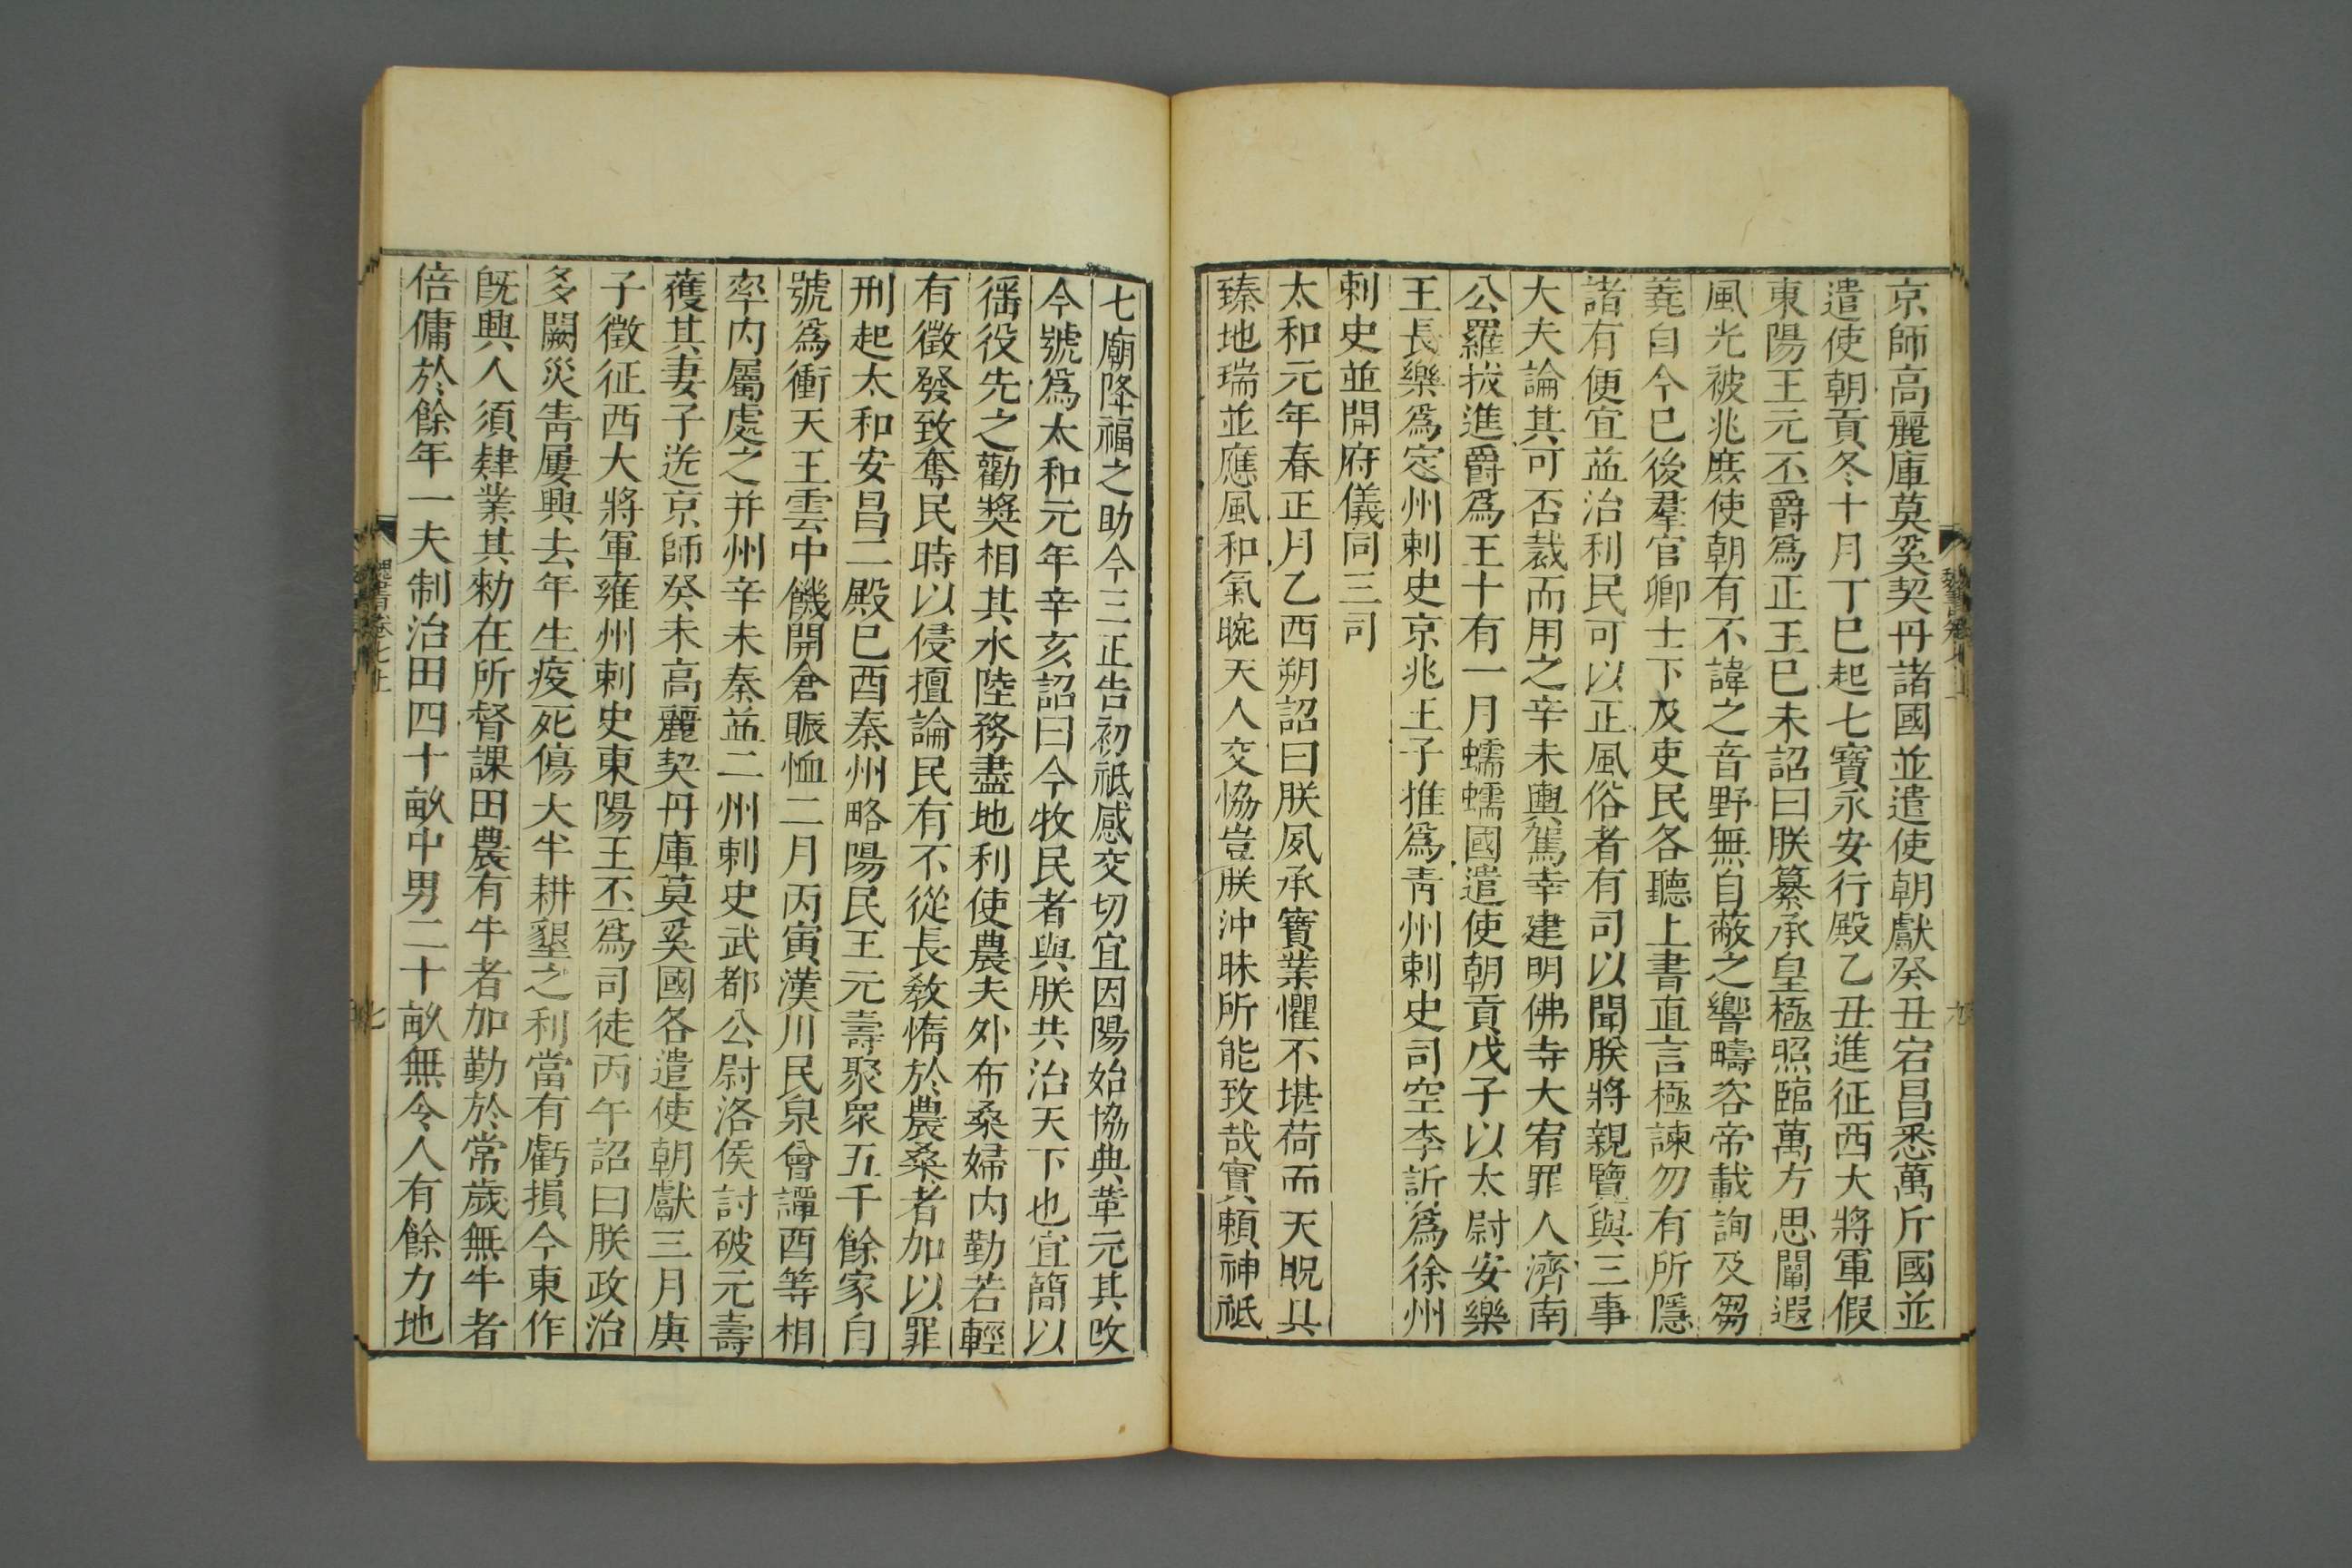 京師高麗庫莫奚契丹諸國並遣使朝獻癸丑宕昌悉萬斤國並
遣使朝貢冬十月丁巳起七寶永安行殿乙丑進征西大將軍假
東陽王元丕爵爲正王巳未詔曰朕纂承皇極照臨萬方思闡遐
風光被兆庶使朝有不諱之音野無自蔽之響疇咨帝載詢及芻
蕘自今巳後羣官卿士下及吏民各聽上書直言極諫勿有所隱
諸有便宜益治利民可以正風俗者有司以聞朕將親覽與三事
大夫論其可否裁而用之辛未輿駕幸建明佛寺大宥罪人濟南
公羅拔進爵爲王十有一月蠕蠕國遣使朝貢戊子以太尉安樂
王長樂爲定州刺史京兆王子推爲青州刺史司空李訢爲徐州
刺史並開府儀同三司
太和元年春正月乙酉朔詔曰朕夙承寶業懼不堪荷而天貺具
臻地瑞並應風和氣晼天人交協豈朕沖昧所能致哉實賴神祇
七廟降福之助今三正告初祇感交切宜因陽始協典革元其改
今號爲太和元年辛亥詔曰今牧民者與朕共治天下也宜簡以
徭役先之勸獎相其水陸務盡地利使農夫外布桑婦内勤若輕
有徵發致奪民時以侵擅論民有不從長敎惰於農桑者加以罪
刑起太和安昌二殿巳酉秦州略陽民王元壽聚衆五千餘家自
號爲衝天王雲中饑開倉賑恤二月丙寅漢川民泉會譚酉等相
率内屬處之并州辛未秦益二州刺史武都公尉洛侯討破元壽
獲其妻子送京師癸未高麗契丹庫莫奚國各遣使朝獻三月庚
子徵征西大將軍雍州刺史東陽王丕爲司徒丙午詔曰朕政治
多闕災眚屢興去年牛疫死傷大半耕墾之利當有虧損今東作
旣興人須肄業其勑在所督課田農有牛者加勤於常歲無牛者
倍傭於餘年一夫制治田四十畝中男二十畝無令人有餘力地
魏書卷七上
七